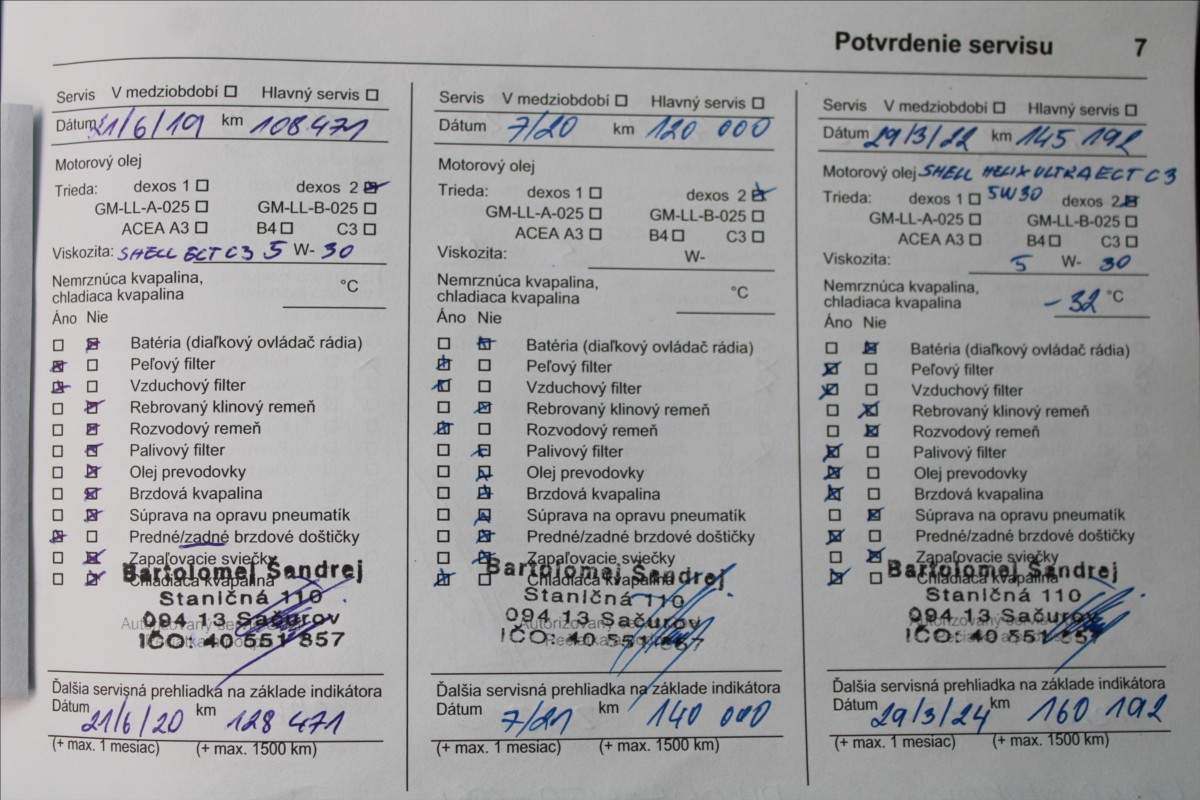 Potvrdenie servisu 7
Servis V medziobdobí Hlavný servis
Dátum 21/6/19 km 108 471
Motorový olej
Trieda: dexos 1 dexos 2
GM-LL-A-025 GM-LL-B-025
ACEA A3 B4 C3
Viskozita: SHELL ECT C3 5 W- 30
Nemrznúca kvapalina,
chladiaca kvapalina °C
Áno Nie
Batéria (diaľkový ovládač rádia)
Peľový filter
Vzduchový filter
Rebrovaný klinový remeň
Rozvodový remeň
Palivový filter
Olej prevodovky
Brzdová kvapalina
Súprava na opravu pneumatík
Predné/zadné brzdové doštičky
Zapaľovacie sviečky
Chladiaca kvapalina
Bartolomej Šandrej
Staničná 110
094 13 Sačurov
IČO: 40 551 857
Ďalšia servisná prehliadka na základe indikátora
Dátum 21/6/20 km 128 471
(+ max. 1 mesiac) (+ max. 1500 km)
Servis V medziobdobí Hlavný servis
Dátum 7/20 km 120 000
Motorový olej
Trieda: dexos 1 dexos 2
GM-LL-A-025 GM-LL-B-025
ACEA A3 B4 C3
Viskozita: W-
Nemrznúca kvapalina,
chladiaca kvapalina °C
Áno Nie
Batéria (diaľkový ovládač rádia)
Peľový filter
Vzduchový filter
Rebrovaný klinový remeň
Rozvodový remeň
Palivový filter
Olej prevodovky
Brzdová kvapalina
Súprava na opravu pneumatík
Predné/zadné brzdové doštičky
Zapaľovacie sviečky
Chladiaca kvapalina
Bartolomej Šandrej
Staničná 110
094 13 Sačurov
Autorizovaný
IČO: 40 551
Ďalšia servisná prehliadka na základe indikátora
Dátum 7/21 km 140 000
(+ max. 1 mesiac) (+ max. 1500 km)
Servis V medziobdobí Hlavný servis
Dátum 29/3/22 km 145 192
Motorový olej SHELL HELIX ULTRA ECT C3
5W30
Trieda: dexos 1 dexos 2
GM-LL-A-025 GM-LL-B-025
ACEA A3 B4 C3
Viskozita: 5 W- 30
Nemrznúca kvapalina,
chladiaca kvapalina -32 °C
Áno Nie
Batéria (diaľkový ovládač rádia)
Peľový filter
Vzduchový filter
Rebrovaný klinový remeň
Rozvodový remeň
Palivový filter
Olej prevodovky
Brzdová kvapalina
Súprava na opravu pneumatík
Predné/zadné brzdové doštičky
Zapaľovacie sviečky
Chladiaca kvapalina
Bartolomej Šandrej
Staničná 110
094 13 Sačurov
Autorizovaný servis
IČO: 40 551 857
Ďalšia servisná prehliadka na základe indikátora
Dátum 29/3/24 km 160 192
(+ max. 1 mesiac) (+ max. 1500 km)